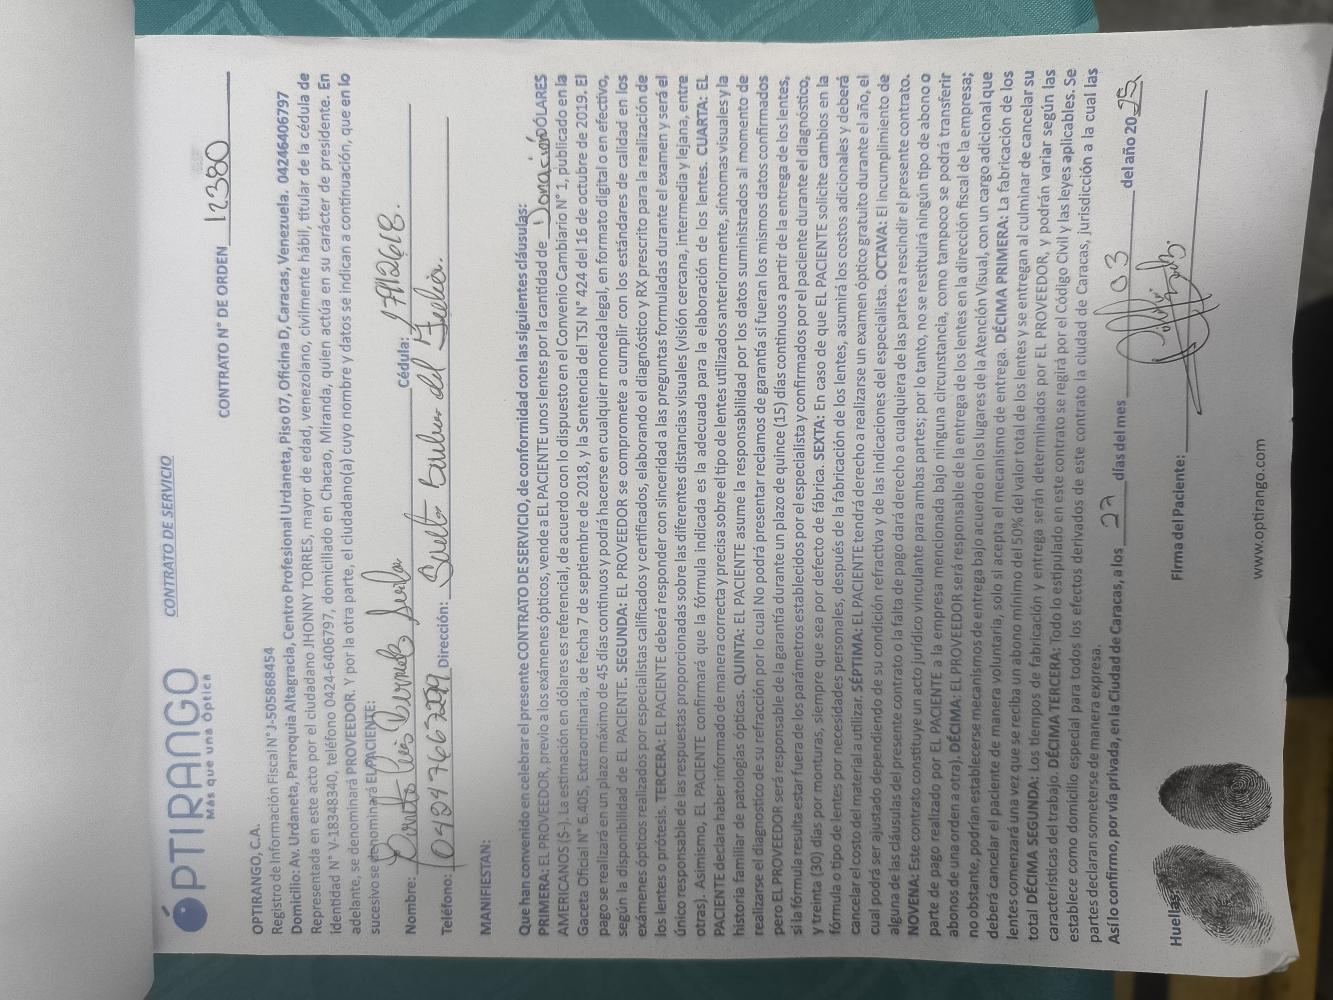 ÓPTIRANGO
Más que una Óptica
CONTRATO DE SERVICIO
CONTRATO N° DE ORDEN 12380
OPTIRANGO, C.A.
Registro de Información Fiscal N° J-505868454
Domicilio: Av. Urdaneta, Parroquia Altagracia, Centro Profesional Urdaneta, Piso 07, Oficina D, Caracas, Venezuela. 04246406797
Representada en este acto por el ciudadano JHONNY TORRES, mayor de edad, venezolano, civilmente hábil, titular de la cédula de
identidad N° V-18348340, teléfono 0424-6406797, domiciliado en Chacao, Miranda, quien actúa en su carácter de presidente. En
adelante, se denominará PROVEEDOR. Y por la otra parte, el ciudadano(a) cuyo nombre y datos se indican a continuación, que en lo
sucesivo se denominará EL PACIENTE:
Nombre: Cédula:
Teléfono: Dirección: del
MANIFIESTAN:
Que han convenido en celebrar el presente CONTRATO DE SERVICIO, de conformidad con las siguientes cláusulas:
PRIMERA: EL PROVEEDOR, previo a los exámenes ópticos, vende a EL PACIENTE unos lentes por la cantidad de Donación DÓLARES
AMERICANOS ($-). La estimación en dólares es referencial, de acuerdo con lo dispuesto en el Convenio Cambiario N° 1, publicado en la
Gaceta Oficial N° 6.405, Extraordinaria, de fecha 7 de septiembre de 2018, y la Sentencia del TSJ N° 424 del 16 de octubre de 2019. El
pago se realizará en un plazo máximo de 45 días continuos y podrá hacerse en cualquier moneda legal, en formato digital o en efectivo,
según la disponibilidad de EL PACIENTE. SEGUNDA: EL PROVEEDOR se compromete a cumplir con los estándares de calidad en los
exámenes ópticos realizados por especialistas calificados y certificados, elaborando el diagnóstico y RX prescrito para la realización de
los lentes o prótesis. TERCERA: EL PACIENTE deberá responder con sinceridad a las preguntas formuladas durante el examen y será el
único responsable de las respuestas proporcionadas sobre las diferentes distancias visuales (visión cercana, intermedia y lejana, entre
otras). Asimismo, EL PACIENTE confirmará que la fórmula indicada es la adecuada para la elaboración de los lentes. CUARTA: EL
PACIENTE declara haber informado de manera correcta y precisa sobre el tipo de lentes utilizados anteriormente, síntomas visuales y la
historia familiar de patologías ópticas. QUINTA: EL PACIENTE asume la responsabilidad por los datos suministrados al momento de
realizarse el diagnostico de su refracción por lo cual No podrá presentar reclamos de garantía si fueran los mismos datos confirmados
pero EL PROVEEDOR será responsable de la garantía durante un plazo de quince (15) días continuos a partir de la entrega de los lentes,
si la fórmula resulta estar fuera de los parámetros establecidos por el especialista y confirmados por el paciente durante el diagnóstico,
y treinta (30) días por monturas, siempre que sea por defecto de fábrica. SEXTA: En caso de que EL PACIENTE solicite cambios en la
fórmula o tipo de lentes por necesidades personales, después de la fabricación de los lentes, asumirá los costos adicionales y deberá
cancelar el costo del material a utilizar. SÉPTIMA: EL PACIENTE tendrá derecho a realizarse un examen óptico gratuito durante el año, el
cual podrá ser ajustado dependiendo de su condición refractiva y de las indicaciones del especialista. OCTAVA: El incumplimiento de
alguna de las cláusulas del presente contrato o la falta de pago dará derecho a cualquiera de las partes a rescindir el presente contrato.
NOVENA: Este contrato constituye un acto jurídico vinculante para ambas partes; por lo tanto, no se restituirá ningún tipo de abono o
parte de pago realizado por EL PACIENTE a la empresa mencionada bajo ninguna circunstancia, como tampoco se podrá transferir
abonos de una orden a otra). DÉCIMA: EL PROVEEDOR será responsable de la entrega de los lentes en la dirección fiscal de la empresa;
no obstante, podrían establecerse mecanismos de entrega bajo acuerdo en los lugares de la Atención Visual, con un cargo adicional que
deberá cancelar el paciente de manera voluntaria, solo si acepta el mecanismo de entrega. DÉCIMA PRIMERA: La fabricación de los
lentes comenzará una vez que se reciba un abono mínimo del 50% del valor total de los lentes y se entregan al culminar de cancelar su
total DÉCIMA SEGUNDA: Los tiempos de fabricación y entrega serán determinados por EL PROVEEDOR, y podrán variar según las
características del trabajo. DÉCIMA TERCERA: Todo lo estipulado en este contrato se regirá por el Código Civil y las leyes aplicables. Se
establece como domicilio especial para todos los efectos derivados de este contrato la ciudad de Caracas, jurisdicción a la cual las
partes declaran someterse de manera expresa.
Así lo confirmo, por vía privada, en la Ciudad de Caracas, a los 27 días del mes 03 del año 2025
Huellas: Firma del Paciente:
www.optirango.com